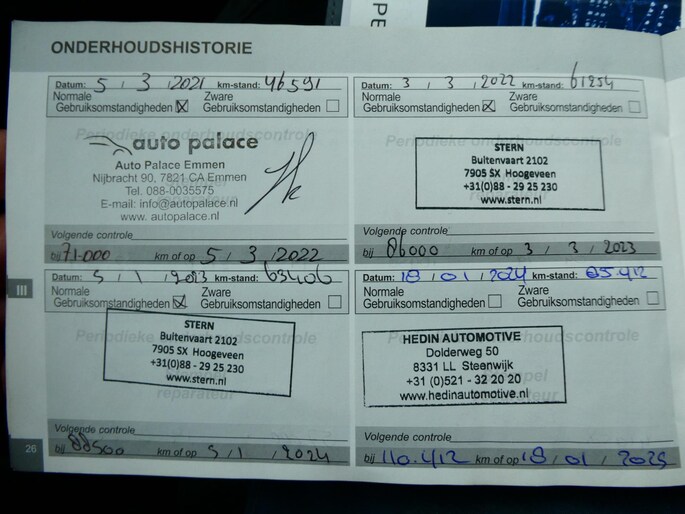 PE
ONDERHOUDSHISTORIE
Datum: 5 / 3 / 2021 km-stand: 46591
Normale Gebruiksomstandigheden ☒ Zware Gebruiksomstandigheden ☐
Periodieke onderhoudscontrole
auto palace
Auto Palace Emmen
Nijbracht 90, 7821 CA Emmen
Tel. 088-0035575
E-mail: info@autopalace.nl
www. autopalace.nl
Volgende controle
bij 71.000 km of op 5 / 3 / 2022
Datum: 3 / 3 / 2022 km-stand: 61254
Normale Gebruiksomstandigheden ☒ Zware Gebruiksomstandigheden ☐
Periodieke onderhoudscontrole
STERN
Buitenvaart 2102
7905 SX Hoogeveen
+31(0)88 - 29 25 230
www.stern.nl
Volgende controle
bij 86000 km of op 3 / 3 / 2023
III
Datum: 5 / 1 / 2023 km-stand: 63406
Normale Gebruiksomstandigheden ☒ Zware Gebruiksomstandigheden ☐
Periodieke onderhoudscontrole
STERN
Buitenvaart 2102
7905 SX Hoogeveen
+31(0)88 - 29 25 230
www.stern.nl
reparateur
Volgende controle
bij 88500 km of op 5 / 1 / 2024
Datum: 18 / 01 / 2024 km-stand: 85.412
Normale Gebruiksomstandigheden ☐ Zware Gebruiksomstandigheden ☐
HEDIN AUTOMOTIVE
Dolderweg 50
8331 LL Steenwijk
+31 (0)521 - 32 20 20
www.hedinautomotive.nl
Volgende controle
bij 110.412 km of op 18 / 01 / 2025
26